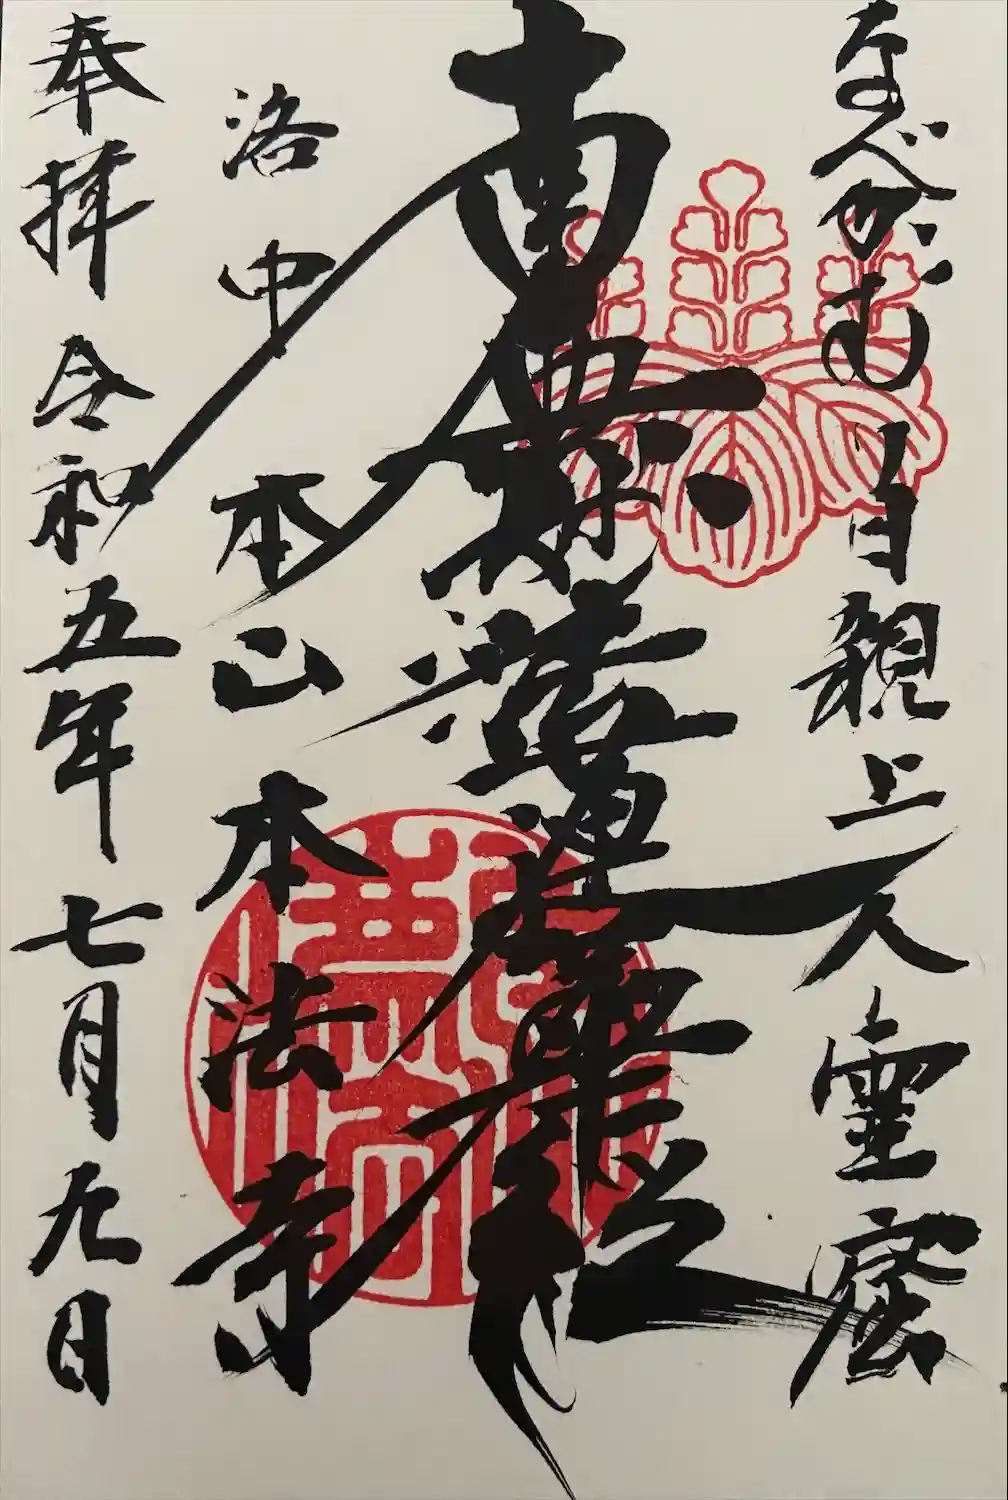 なべかむり日親上人霊窟
南無妙法蓮華経
洛中 本山 本法寺
奉拝 令和五年七月九日